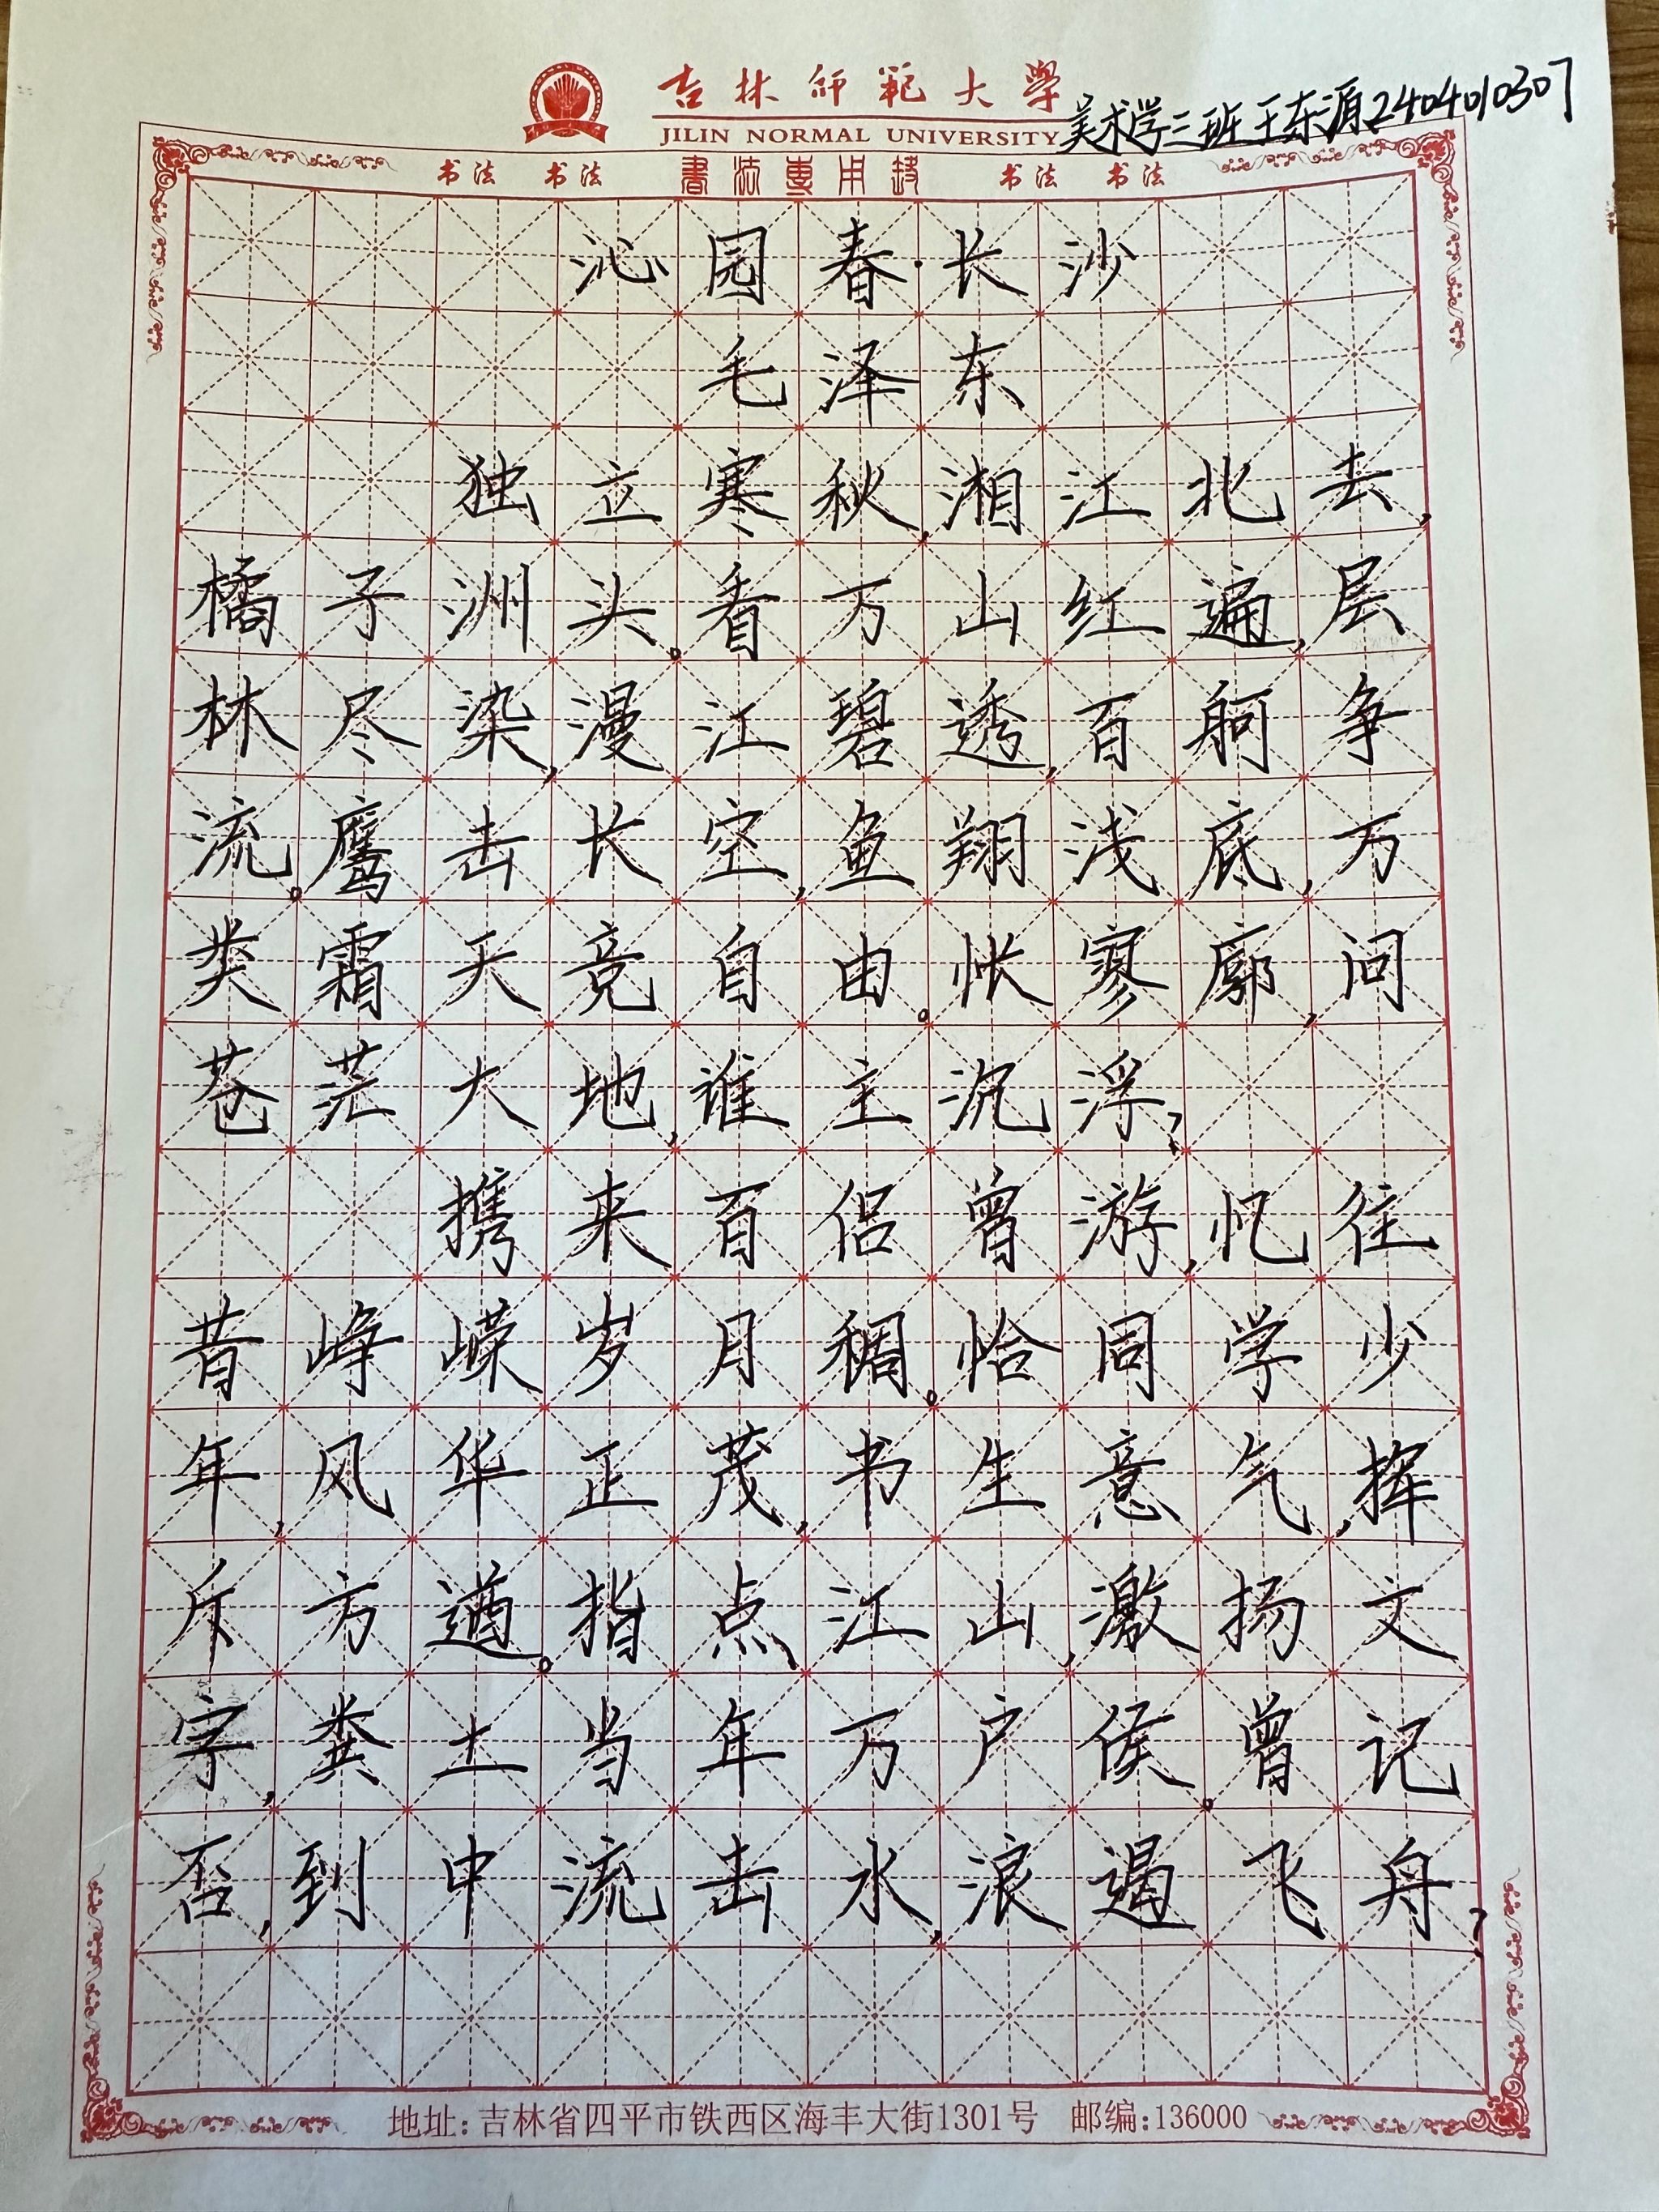 吉林师范大学
JILIN NORMAL UNIVERSITY
美术学三班王东源2404010307
书法 书法 書法專用錢 书法 书法
沁园春·长沙
毛泽东
独立寒秋,湘江北去,
橘子洲头。看万山红遍,层
林尽染,漫江碧透,百舸争
流。鹰击长空,鱼翔浅底,万
类霜天竞自由。怅寥廓,问
苍茫大地,谁主沉浮?
携来百侣曾游,忆往
昔峥嵘岁月稠。恰同学少
年,风华正茂,书生意气,挥
斥方遒。指点江山,激扬文
字,粪土当年万户侯。曾记
否,到中流击水,浪遏飞舟?
地址:吉林省四平市铁西区海丰大街1301号 邮编:136000